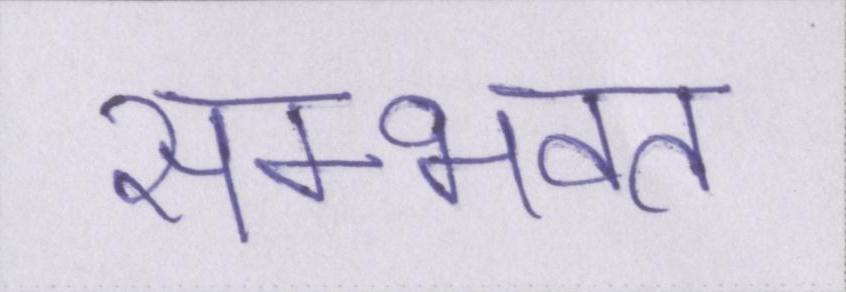 सम्भवत